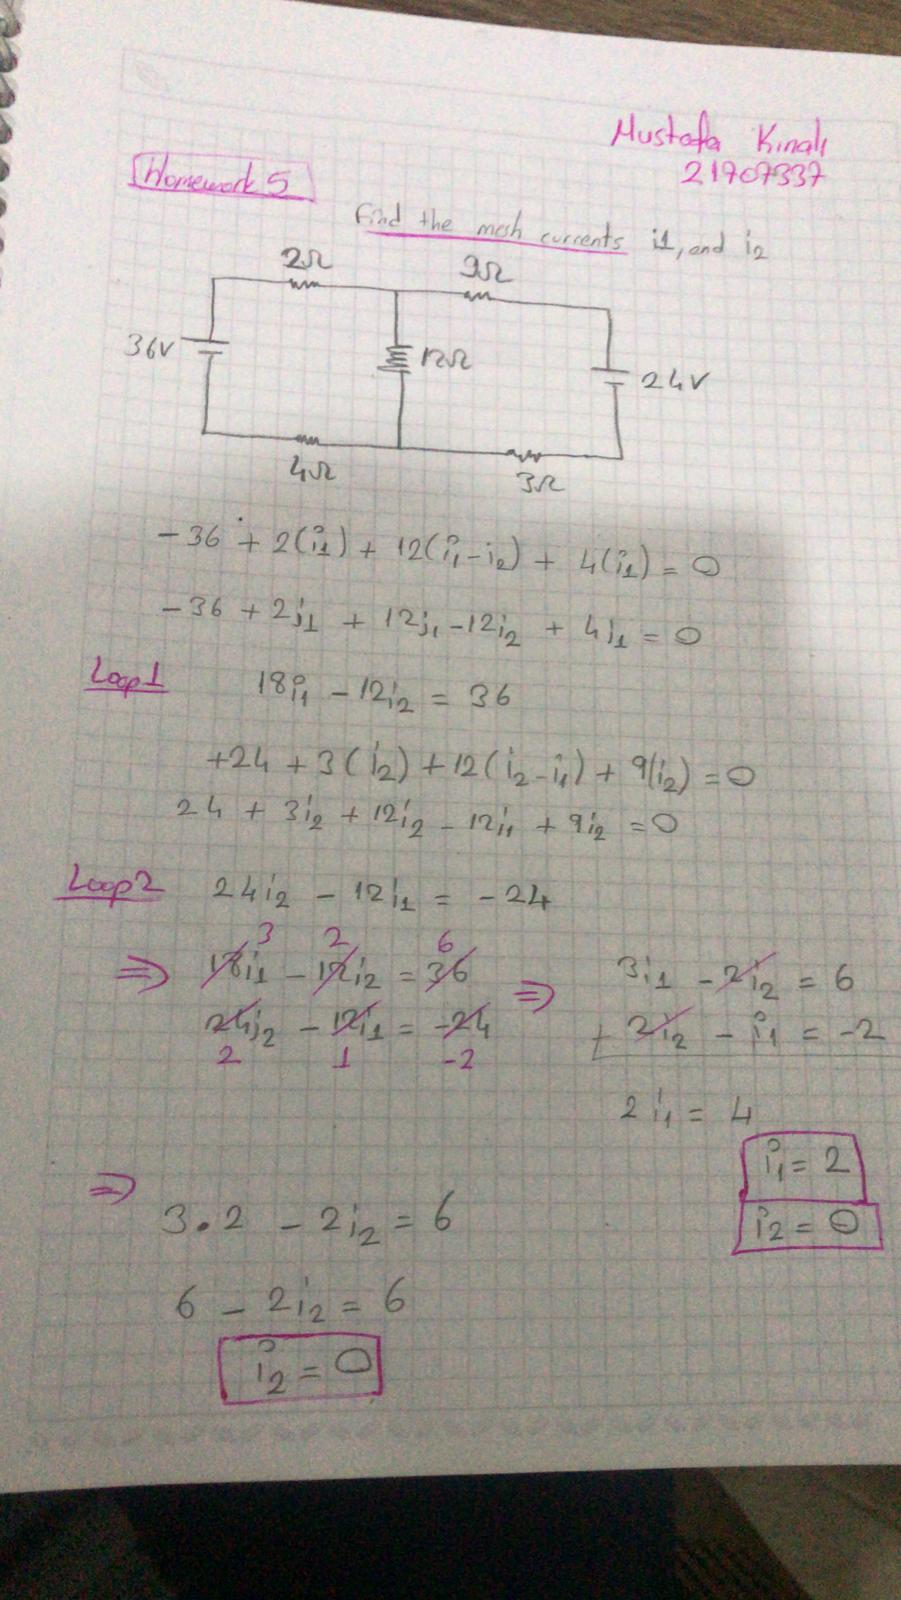 Mustafa Kınalı
21907337
Homework 5
Find the mesh currents i1, and i2
2Ω 9Ω
36V 12Ω 24V
4Ω 3Ω
-36 + 2(i1) + 12(i1-i2) + 4(i1) = 0
-36 + 2i1 + 12i1 - 12i2 + 4i1 = 0
Loop1 18i1 - 12i2 = 36
+24 + 3(i2) + 12(i2-i1) + 9(i2) = 0
24 + 3i2 + 12i2 - 12i1 + 9i2 = 0
Loop2 24i2 - 12i1 = -24
3 2 6
⇒ 18i1 - 12i2 = 36 ⇒ 3i1 - 2i2 = 6
24i2 - 12i1 = -24 + 2i2 - i1 = -2
2 1 -2
2i1 = 4
i1 = 2
⇒ 3.2 - 2i2 = 6 i2 = 0
6 - 2i2 = 6
i2 = 0